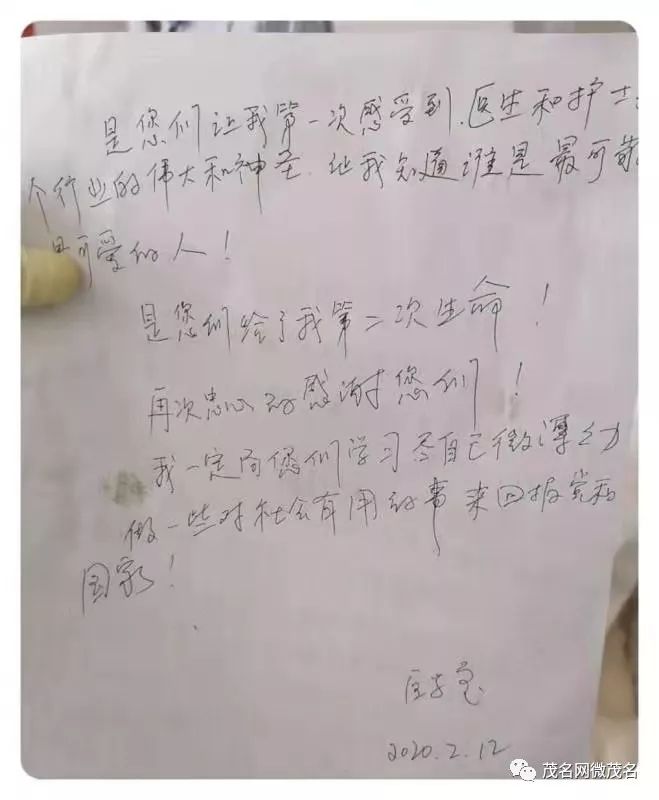 是您们让我第一次感受到.医生和护士
个行业的伟大和神圣.让我知道谁是最可靠
最可爱的人！
是您们给了我第二次生命！
再次忠心的感谢您们！
我一定向您们学习尽自己微薄之力
做一些对社会有用的事来回报党和
国家！
2020.2.12
茂名网微茂名